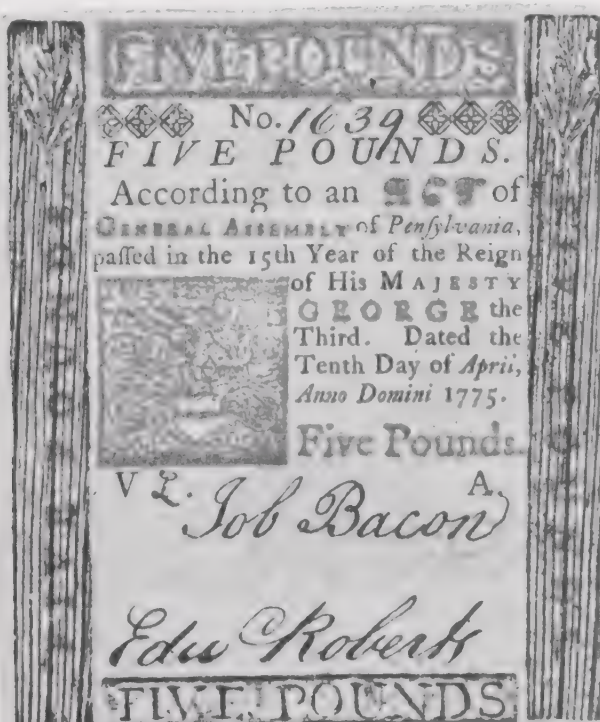 FIVE POUNDS
No. 1639
FIVE POUNDS.
According to an ACT of
GENERAL ASSEMBLY of Penſylvania,
paſſed in the 15th Year of the Reign
of His MAJESTY
GEORGE the
Third. Dated the
Tenth Day of April,
Anno Domini 1775.
Five Pounds.
V £. A.
Job Bacon
Edw Roberts
FIVE POUNDS